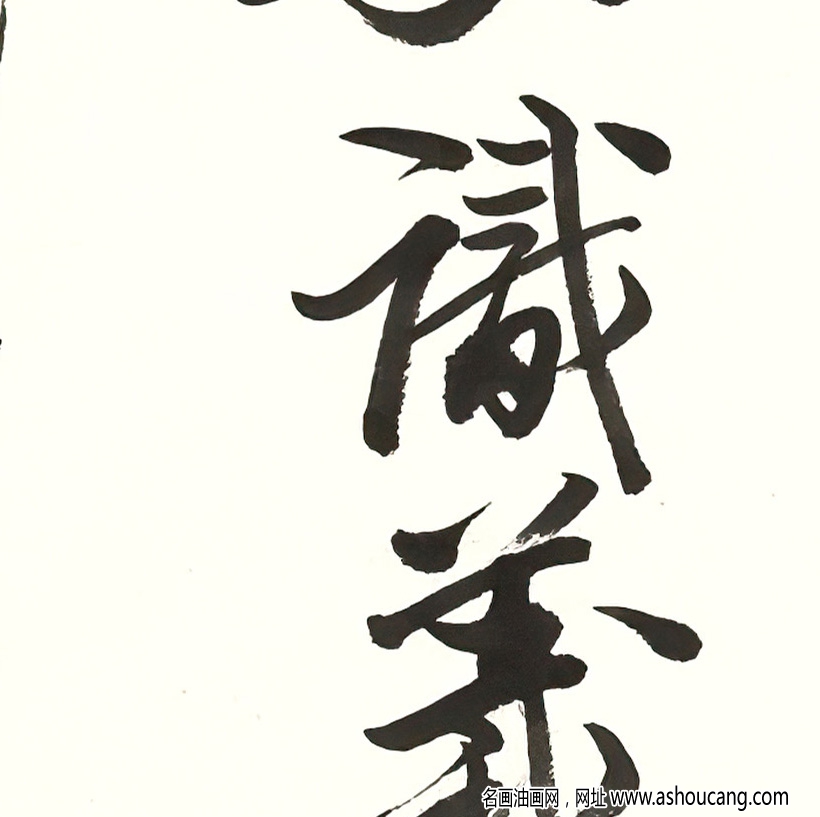 識義
名画油画网，网址 www.ashoucang.com